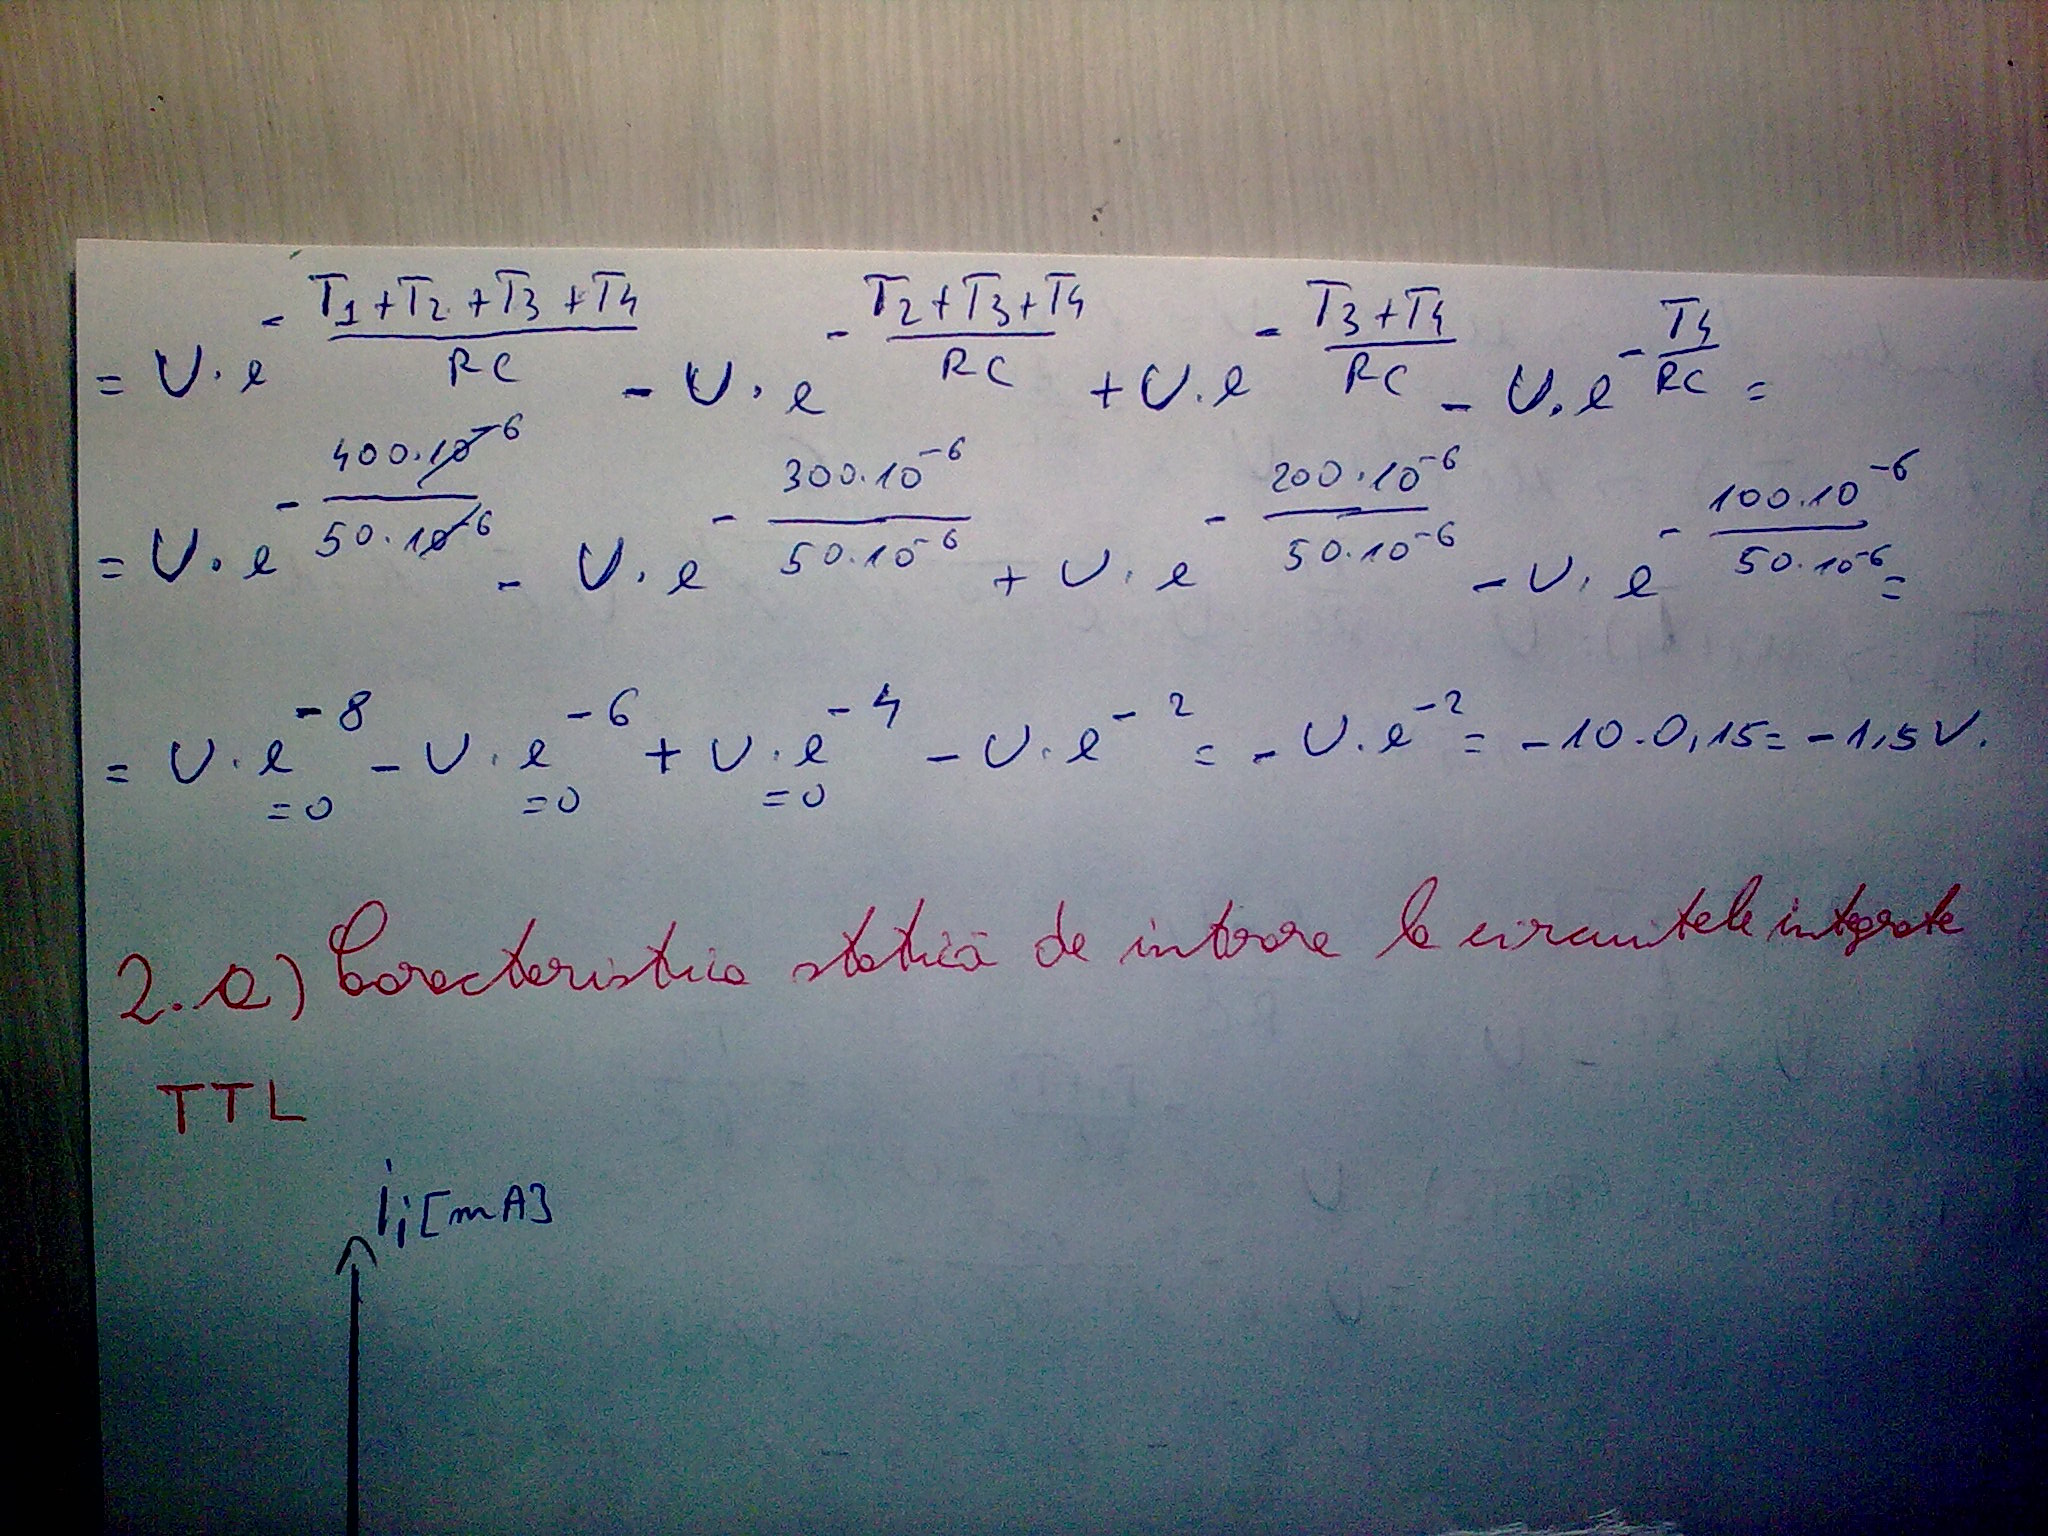 = U·e^{-\frac{T1+T2+T3+T4}{RC}} - U·e^{-\frac{T2+T3+T4}{RC}} + U·e^{-\frac{T3+T4}{RC}} - U·e^{-\frac{T4}{RC}} =
= U·e^{-\frac{400·10^{-6}}{50·10^{-6}}} - U·e^{-\frac{300·10^{-6}}{50·10^{-6}}} + U·e^{-\frac{200·10^{-6}}{50·10^{-6}}} - U·e^{-\frac{100·10^{-6}}{50·10^{-6}}} =
= U·e^{-8} - U·e^{-6} + U·e^{-4} - U·e^{-2} = -U·e^{-2} = -10·0,15 = -1,5V.
=0 =0 =0
2. a) Caracteristica statică de intrare la circuitele integrate
TTL
Ii[mA]